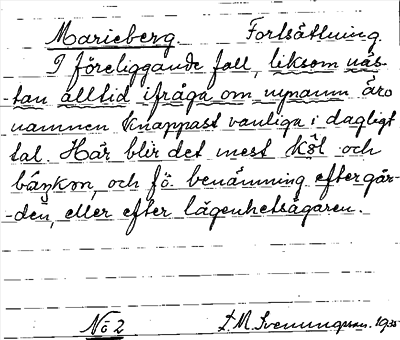 Marieberg. Fortsättning.
I föreliggande fall, liksom näs-
tan alltid ifråga om nynamn äro
namnen knappast vanliga i dagligt
tal. Här blir det mest kôl och
, och fö. benämning efter går-
-den, eller efter lägenhetsägaren.
No 2 1935